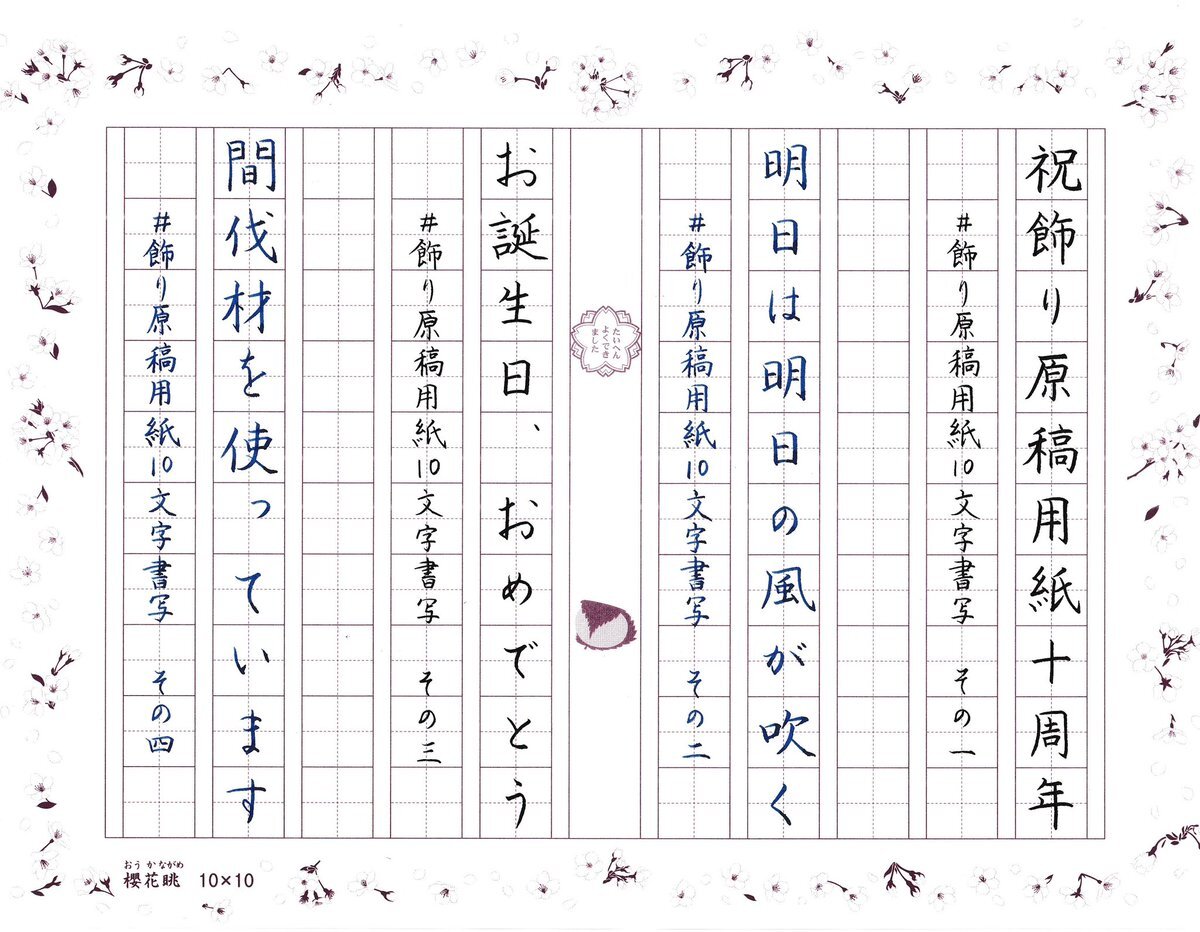 祝飾り原稿用紙十周年
#飾り原稿用紙10文字書写 その一
明日は明日の風が吹く
#飾り原稿用紙10文字書写 その二
たいへん
よくでき
ました
お誕生日、おめでとう
#飾り原稿用紙10文字書写 その三
間伐材を使っています
#飾り原稿用紙10文字書写 その四
おうかながめ
櫻花眺 10×10